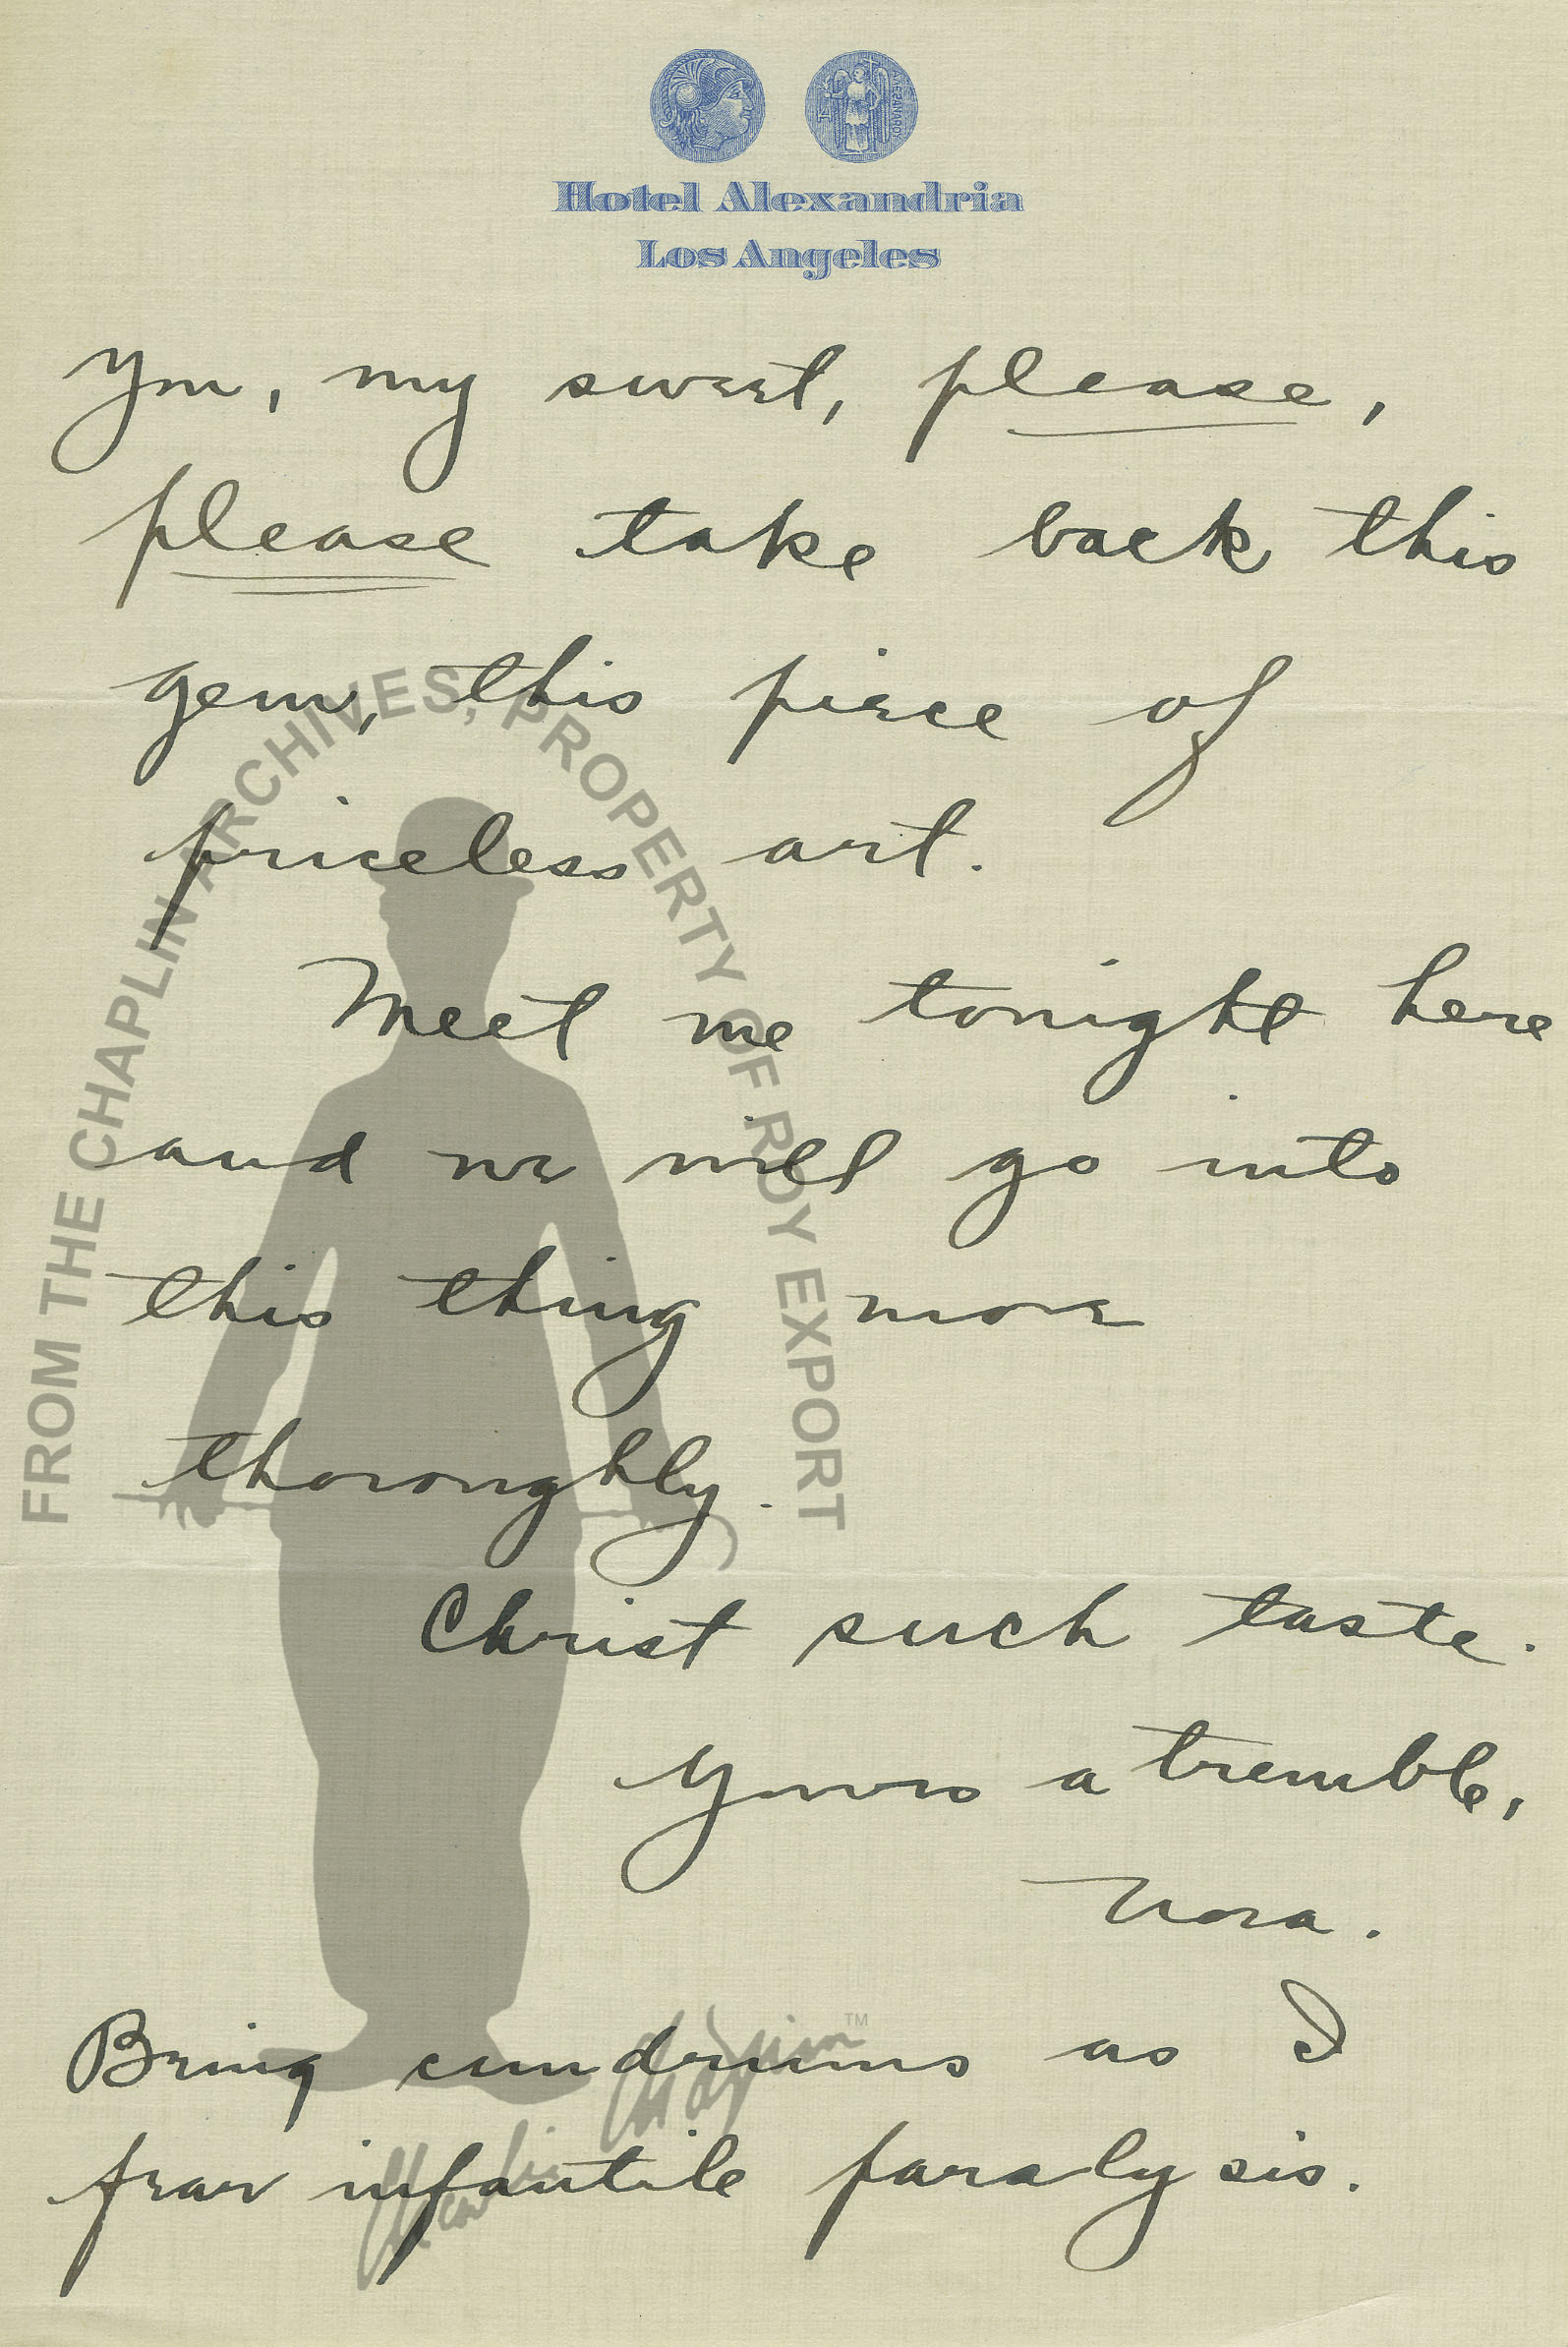 Hotel Alexandria
Los Angeles
You, my sweet, please,
please take back this
gem, this piece of
priceless art.
Meet me tonight here
and we will go into
this thing more
thoroughly.
Christ such taste.
Yours a tremble,
Nora.
Bring cundrums as I
fear infantile paralysis.
FROM THE CHAPLIN ARCHIVES, PROPERTY OF ROY EXPORT
Charlie Chaplin™